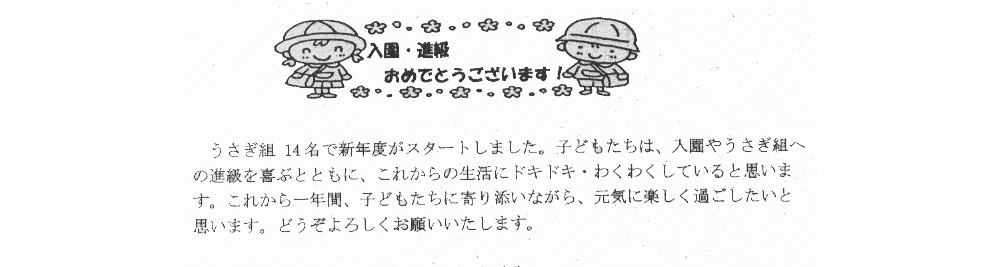 入園・進級
おめでとうございます！
うさぎ組 14名で新年度がスタートしました。子どもたちは、入園やうさぎ組へ
の進級を喜ぶとともに、これからの生活にドキドキ・わくわくしていると思いま
す。これから一年間、子どもたちに寄り添いながら、元気に楽しく過ごしたいと
思います。どうぞよろしくお願いいたします。